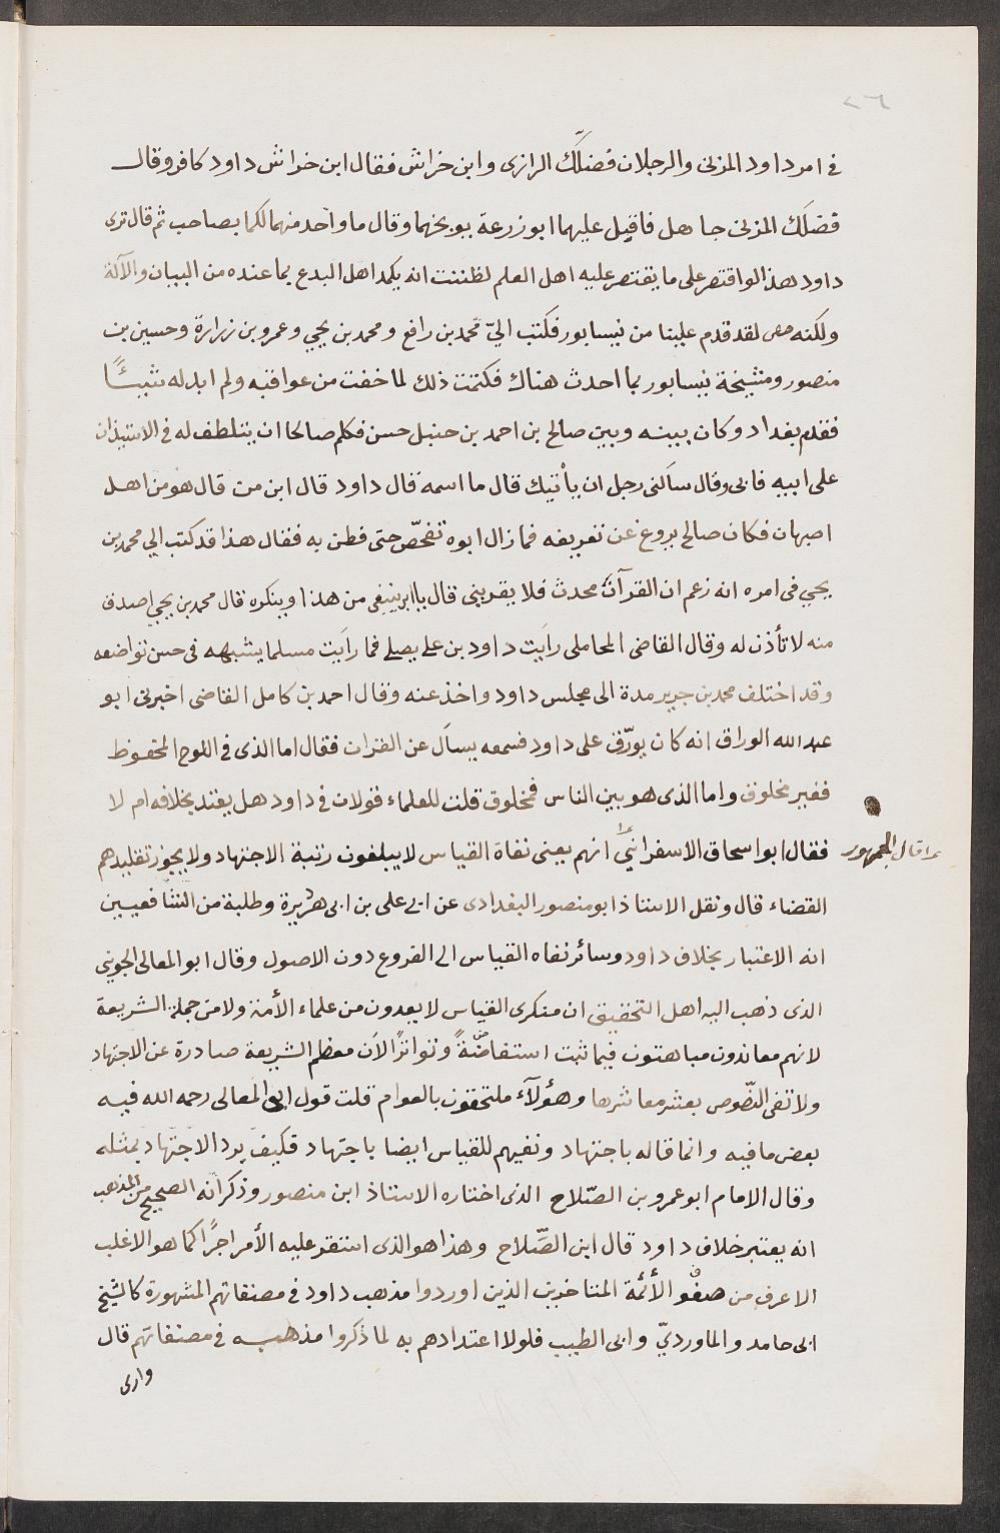 ٢٦
في امر داود المزنى والرجلان فضلَك الرازى وابن خراش فقال ابن خراش داود كافر وقال
فضلَك المزنى جاهل فاقبل عليهما ابو زرعة يوبخهما وقال ما واحد منهما لكما بصاحب ثم قال ترى
داود هذا لو اقتصر على ما يقتصر عليه اهل العلم لظننت انه يكمد اهل البدع بما عنده من البيان والآلة
ولكنه لقد قدم علينا من نيسابور فكتب اليّ محمد بن رافع ومحمد بن يحيي وعمرو بن زرارة وحسين بن
منصور ومشيخة نيسابور بما احدث هناك فكتمت ذلك لما خفت من عواقبه ولم ابد له شيئًا
فقدم بغداد وكان بينه وبين صالح بن احمد بن حنبل حسن فكلم صالحا ان يتلطف له فى الاستيذان
على ابيه فاتى وقال سألنى رجل ان يأتيك قال ما اسمه قال داود قال ابن من قال هو من اهل
اصبهان فكان صالح يروغ عن تعريفه فما زال ابوه تفحّص حتى فطن به فقال هذا قد كتب الي محمد بن
يحيي فى امره انه زعم ان القرآن محدث فلا يقربنى قال ياابه ينتفى من هذا وينكره قال محمد بن يحيي اصدق
منه لا تأذن له وقال القاضى المحاملى رأيت داود بن على يصلى فما رأيت مسلما يشبهه فى حسن تواضعه
وقد اختلف محمد بن جرير مدة الى مجلس داود واخذ عنه وقال احمد بن كامل القاضى اخبرنى ابو
عبد الله الوراق انه كان يورّق على داود فسمعه يسأل عن القران فقال اما الذى فى اللوح المحفوظ
فغير مخلوق واما الذى هو بين الناس فمخلوق قلت للعلماء قولان فى داود هل يعتد بخلافه ام لا
فقال ابو اسحاق الاسفرائنى انهم يعنى نفاة القياس لا يبلغون رتبة الاجتهاد ولا يجوز تقليدهم
قال الجمهور
القضاء قال ونقل الاستاذ ابو منصور البغدادى عن ابي على بن ابى هريرة وطلبة من الشافعيين
انه الاعتبار بخلاف داود وسائر نفاه القياس الى الفروع دون الاصول وقال ابو المعالى الجوينى
الذى ذهب اليه اهل التحقيق ان منكرى القياس لا يعدون من علماء الأمة ولا من جملة الشريعة
لانهم معاندون مباهتون فيما ثبت استفاضةً وتواترًا لان معظم الشريعة صادرة عن الاجتهاد
ولا تفى النصّوص بعشر معاشرها وهؤلآء ملتحقون بالعوام قلت قول ابى المعالى رحمه الله فيه
بعض ما فيه وانما قاله باجتهاد ونفيهم للقياس ايضا باجتهاد فكيف يرد الاجتهاد بمثله
وقال الامام ابو عمرو بن الصّلاح الذى اختاره الاستاذ ابن منصور وذكر انه الصحيح من المذهب
انه يعتبر خلاف داود قال ابن الصّلاح وهذا هو الذى استقر عليه الأمر اخرًا كما هو الاغلب
الاعرف من صفو الأئمة المتاخرين الذين اوردوا مذهب داود فى مصنفاتهم المشهورة كالشيخ
ابى حامد والماورديّ وابى الطيب فلولا اعتدادهم به لما ذكروا مذهبه فى مصنفاتهم قال
وارى